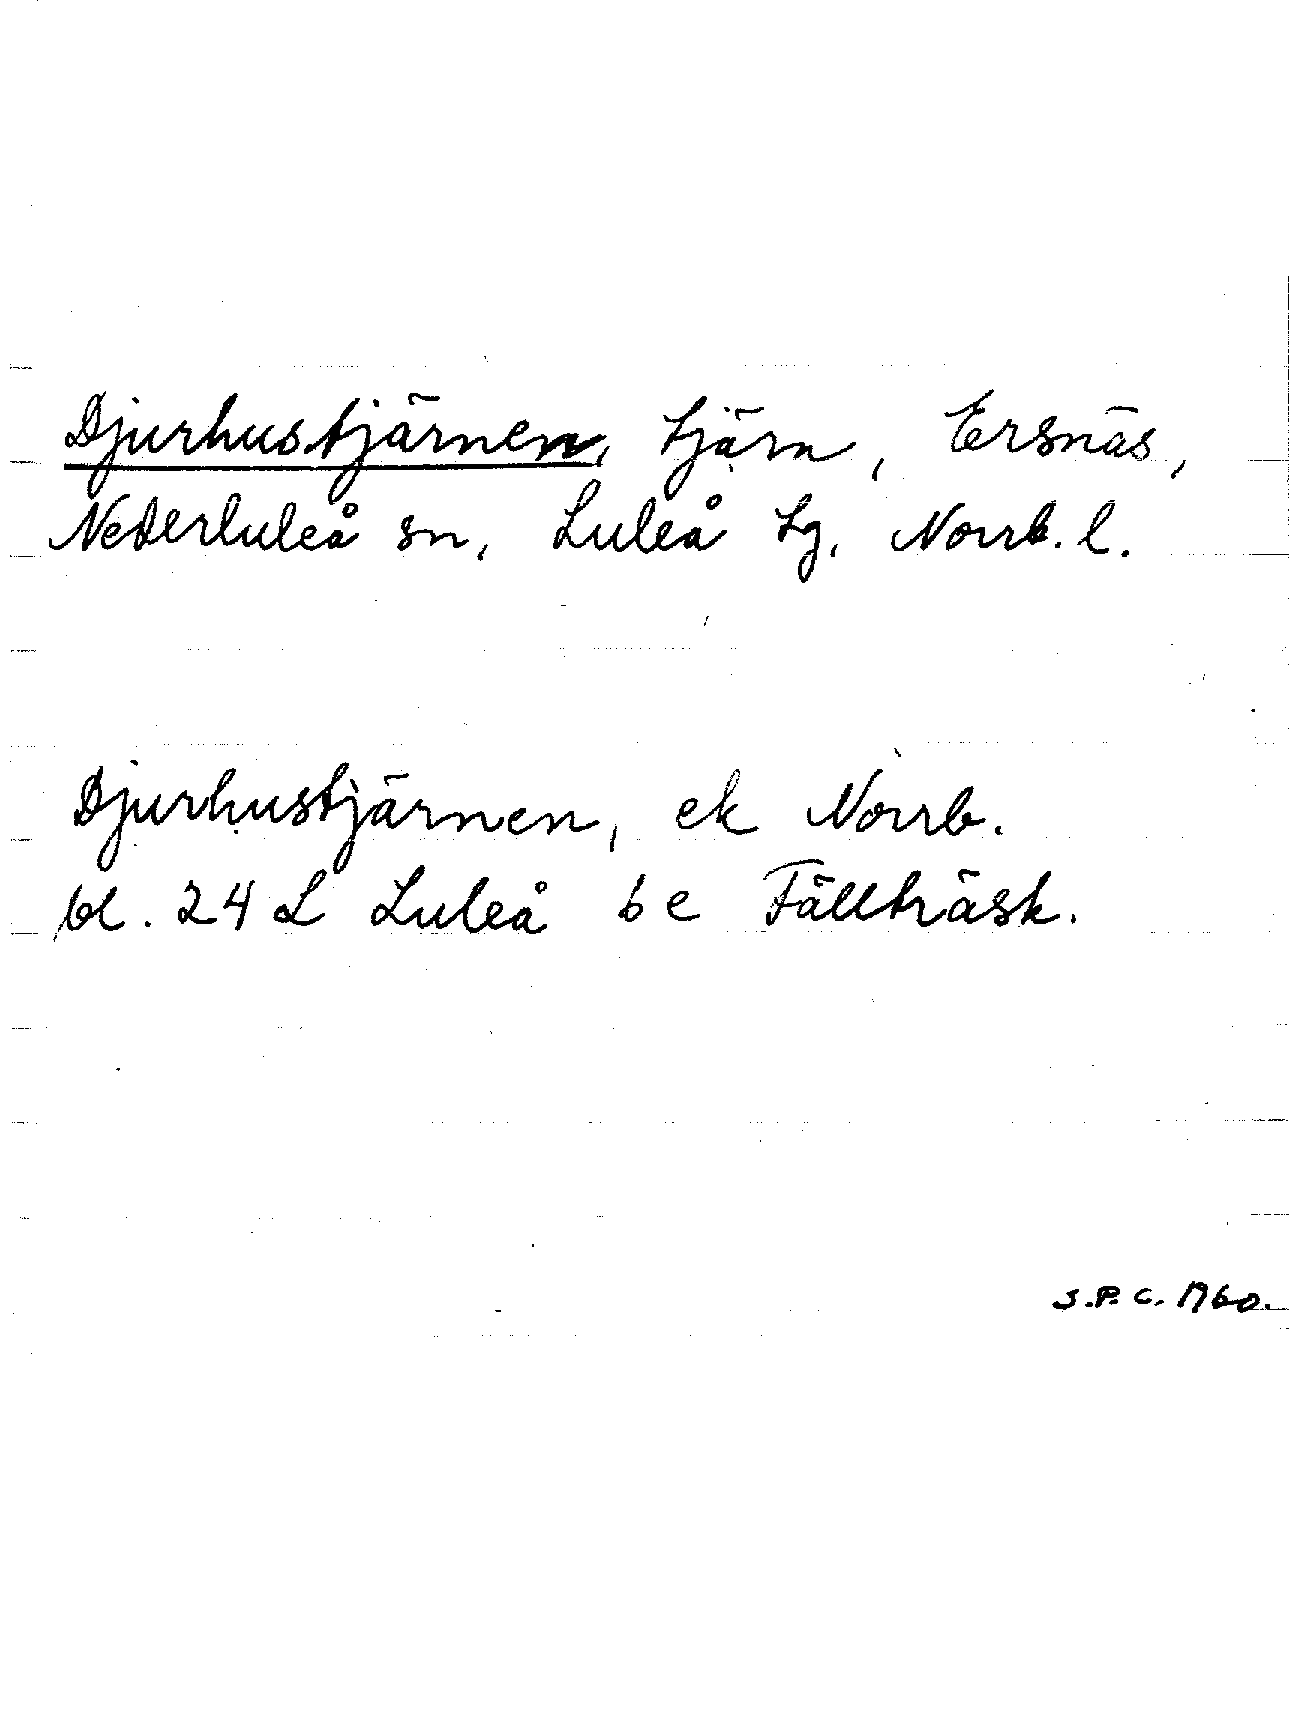 Djurhustjärnen, tjärn, Ersnäs,
Nederluleå sn, Luleå tg, Norrb. l.
Djurhustjärnen, ek Norrb.
bl. 24 L Luleå 6 e Fällträsk.
S.P.C. 1960.